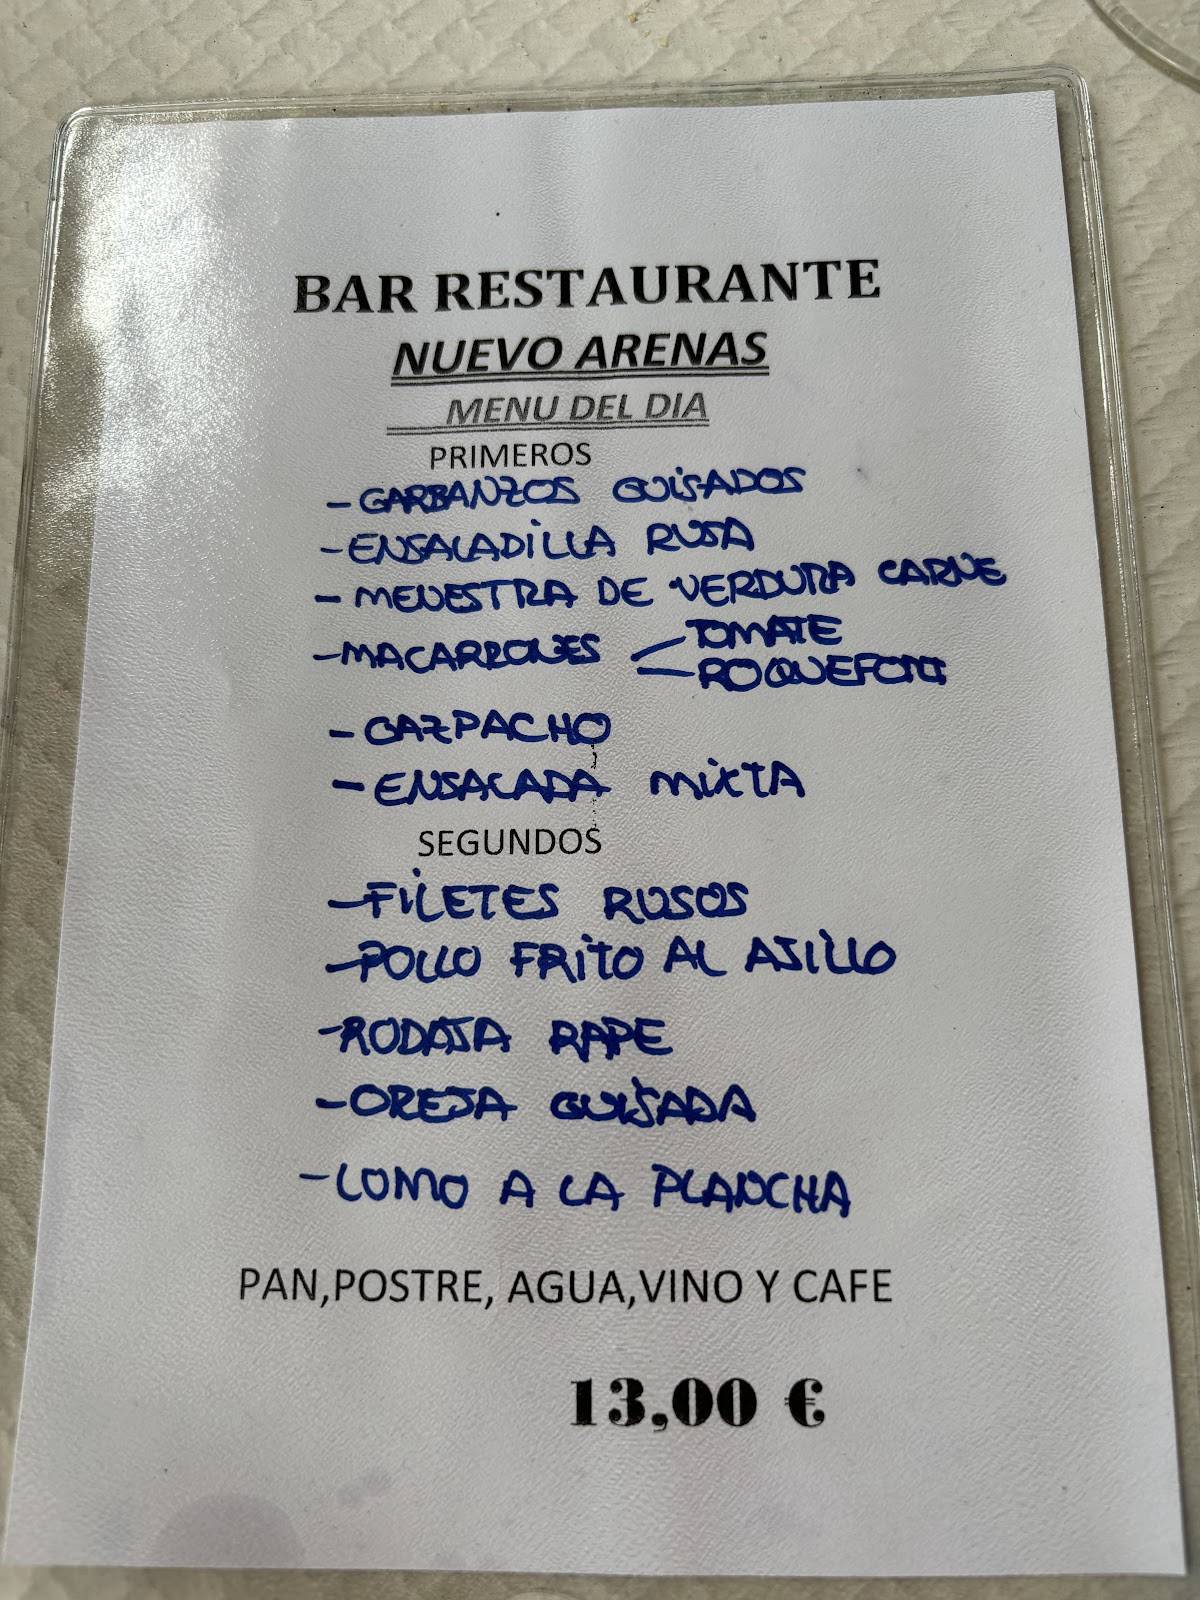 BAR RESTAURANTE
NUEVO ARENAS
MENU DEL DIA
PRIMEROS
- GARBANZOS GUISADOS
- ENSALADILLA RUSA
- MENESTRA DE VERDURA CARNE
- MACARRONES TOMATE
ROQUEFORT
- GAZPACHO
- ENSALADA MIXTA
SEGUNDOS
- FILETES RUSOS
- POLLO FRITO AL AJILLO
- RODAJA RAPE
- OREJA GUISADA
- LOMO A LA PLANCHA
PAN,POSTRE, AGUA,VINO Y CAFE
13,00 €